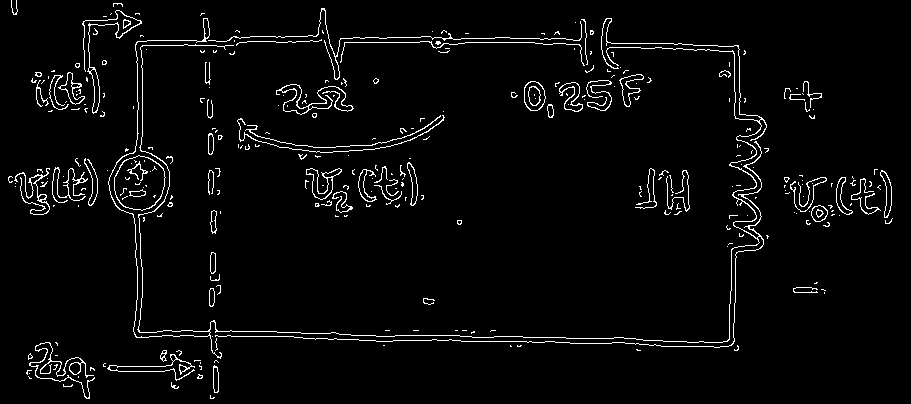 i(t)
2Ω
0,25F
+
v_s(t)
+
-
v_2(t)
1H
v_0(t)
-